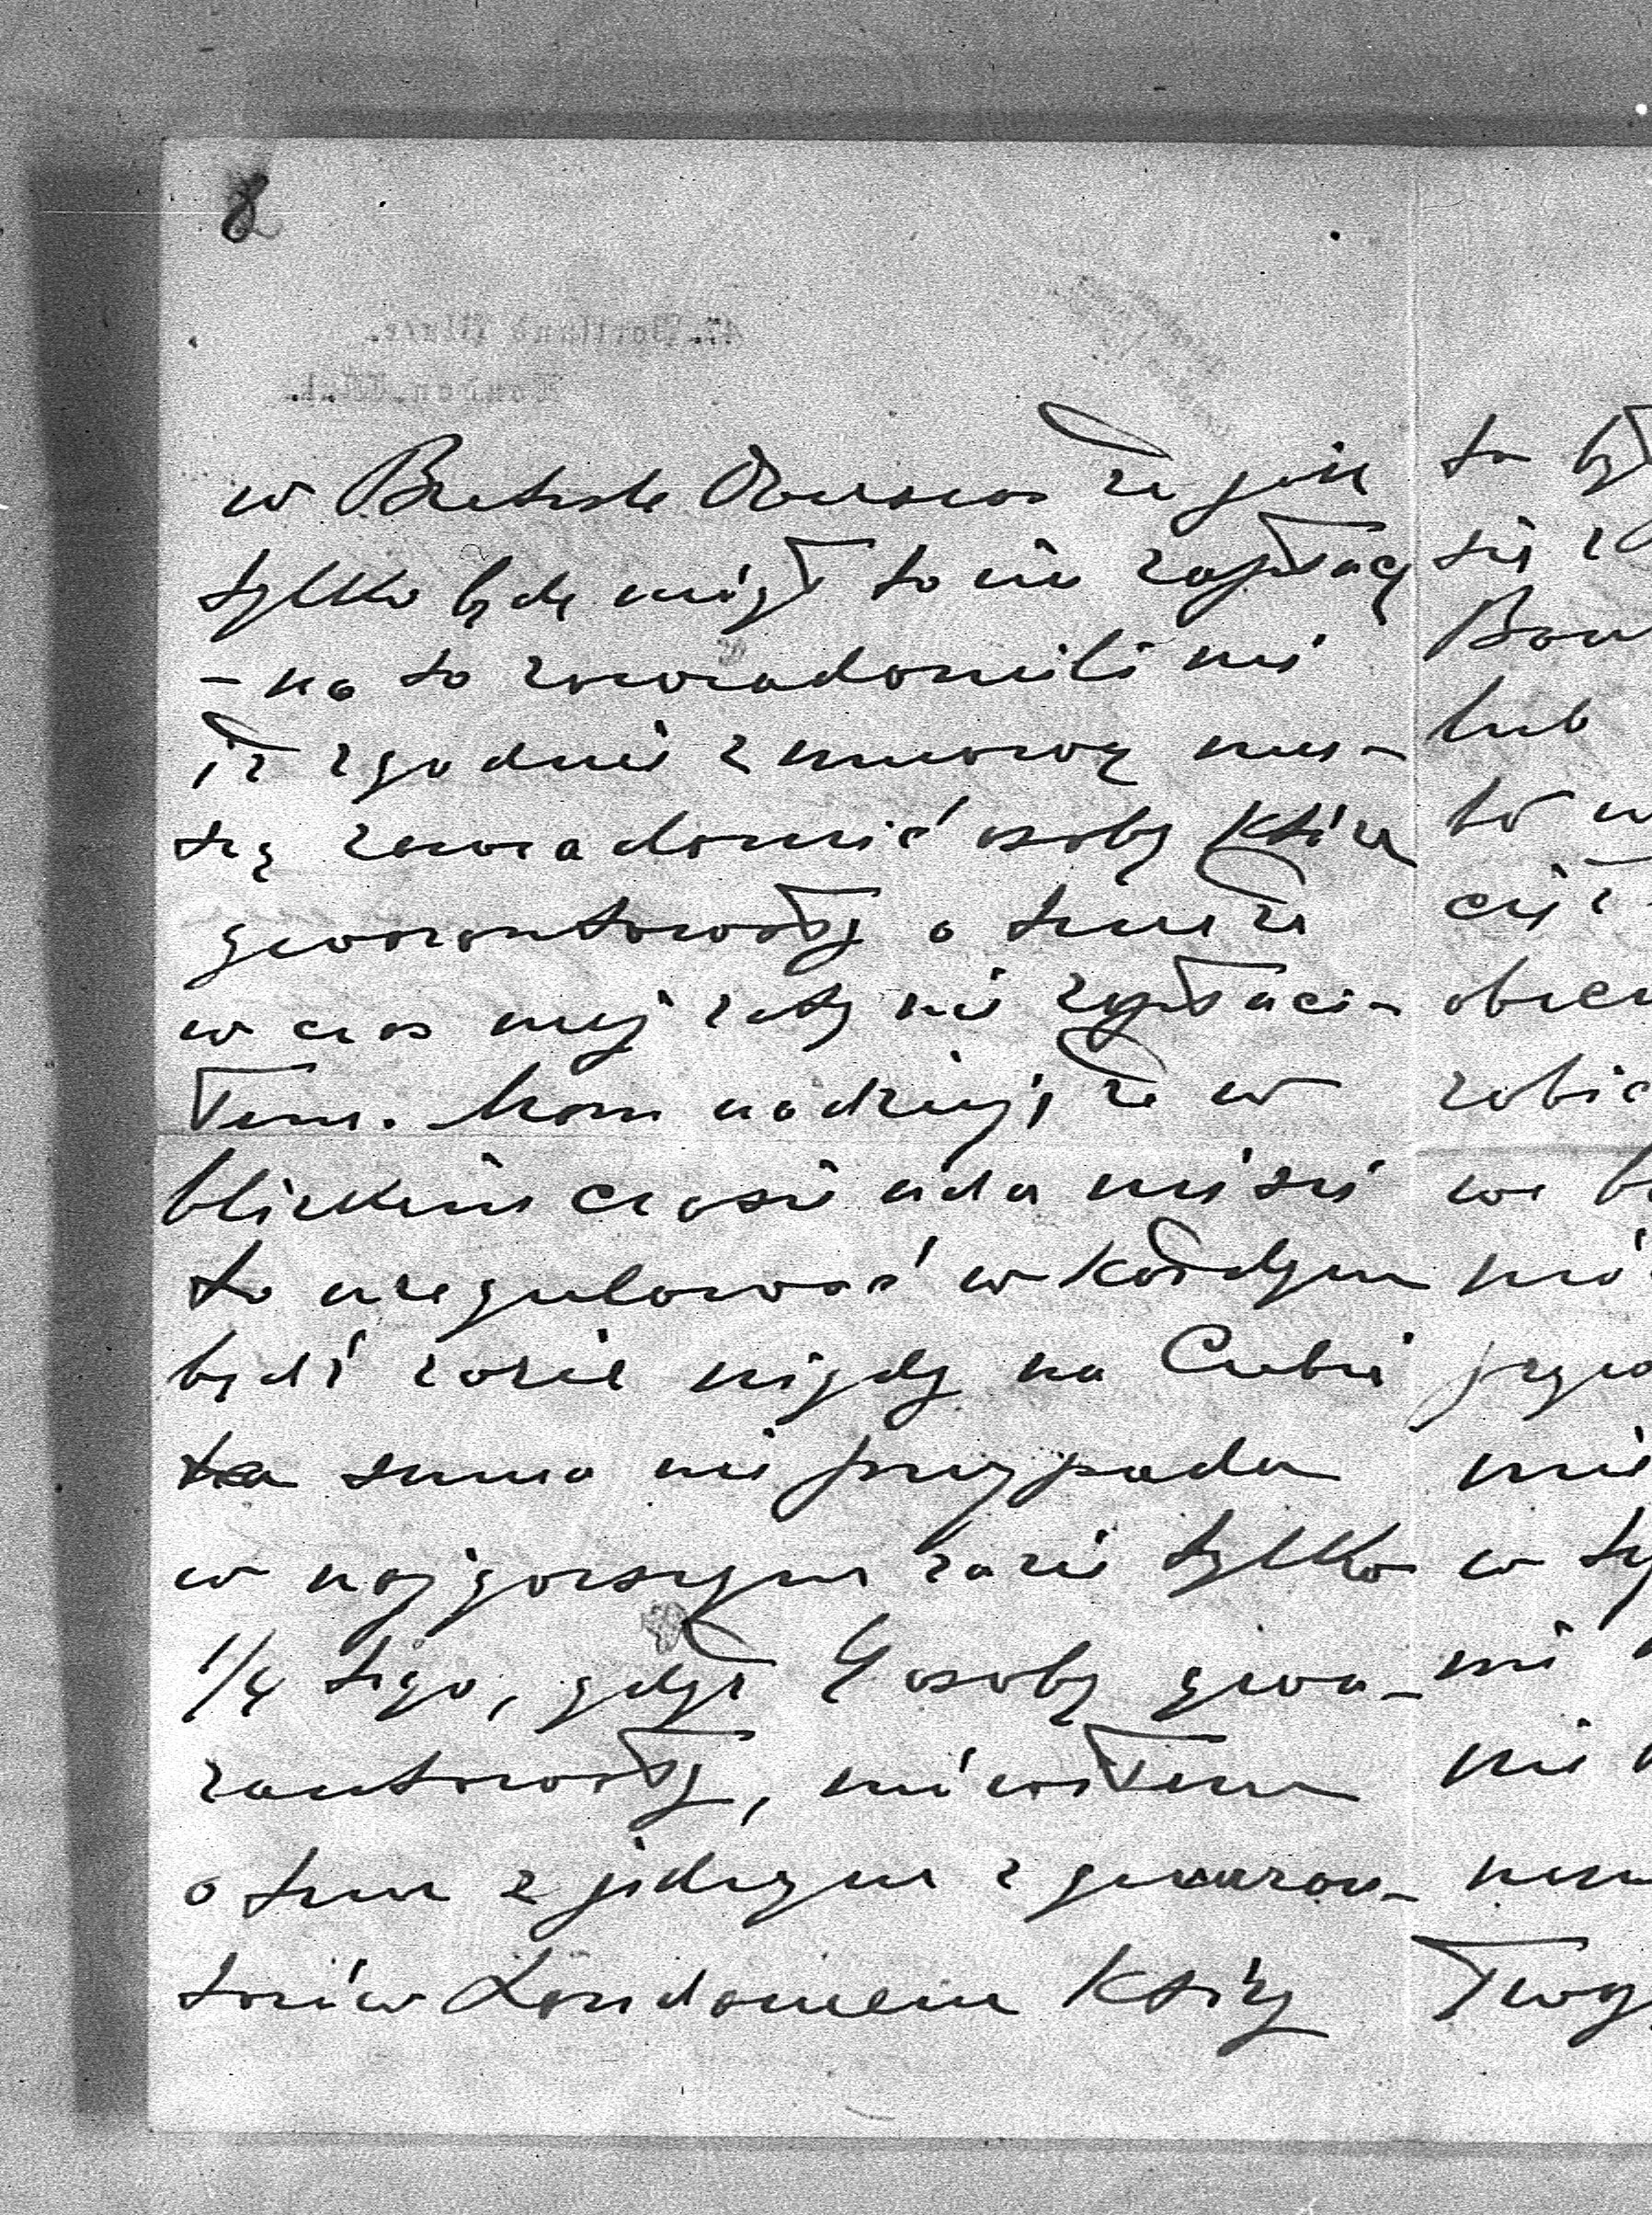 8
w British Overseas że jak
tylko będę mógł to im zapłacę
- na to zawiadomili mi
iż zgodnie z umową mu-
szą zawiadomić osoby które
gwarantowały o tem że
w czas mej raty nie zapłaci-
łem. Mam nadzieję, że w
bliskim czasie uda mi się
to uregulować w każdym
bądź razie nigdy na Ciebie
ta suma nie przypada
w najgorszym razie tylko
1/4 tego, gdyż 4 osoby gwa-
rantowały, mówiłem
o tem z jednym z gwaran-
torów Londonem który
to
się
lub
to
obiec
robić
we
mó
przy
mie
w ty
mi
nie
Twoj